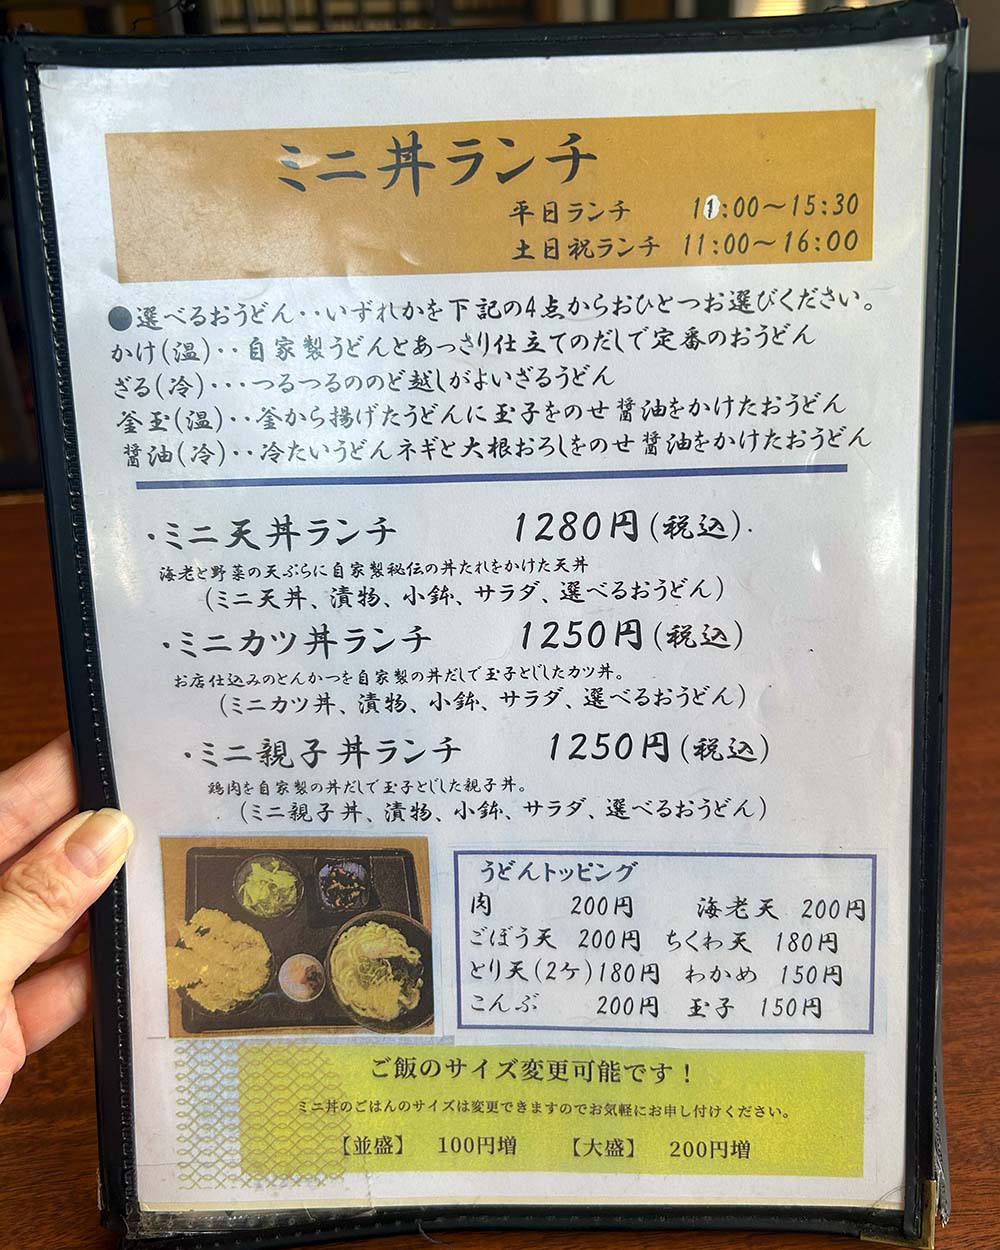 ミニ丼ランチ
平日ランチ 11:00～15:30
土日祝ランチ 11:00～16:00
●選べるおうどん‥いずれかを下記の4点からおひとつお選びください。
かけ(温)‥自家製うどんとあっさり仕立てのだしで定番のおうどん
ざる(冷)･･･つるつるののど越しがよいざるうどん
釜玉(温)‥釜から揚げたうどんに玉子をのせ醤油をかけたおうどん
醤油(冷)‥冷たいうどんネギと大根おろしをのせ醤油をかけたおうどん
・ミニ天丼ランチ 1280円(税込).
海老と野菜の天ぷらに自家製秘伝の丼たれをかけた天丼
(ミニ天丼、漬物、小鉢、サラダ、選べるおうどん)
・ミニカツ丼ランチ 1250円(税込)
お店仕込みのとんかつを自家製の丼だしで玉子とじしたカツ丼。
(ミニカツ丼、漬物、小鉢、サラダ、選べるおうどん)
・ミニ親子丼ランチ 1250円(税込)
鶏肉を自家製の丼だしで玉子とじした親子丼。
(ミニ親子丼、漬物、小鉢、サラダ、選べるおうどん)
うどんトッピング
肉 200円 海老天 200円
ごぼう天 200円 ちくわ天 180円
とり天(2ケ)180円 わかめ 150円
こんぶ 200円 玉子 150円
ご飯のサイズ変更可能です！
ミニ丼のごはんのサイズは変更できますのでお気軽にお申し付けください。
【並盛】 100円増 【大盛】 200円増